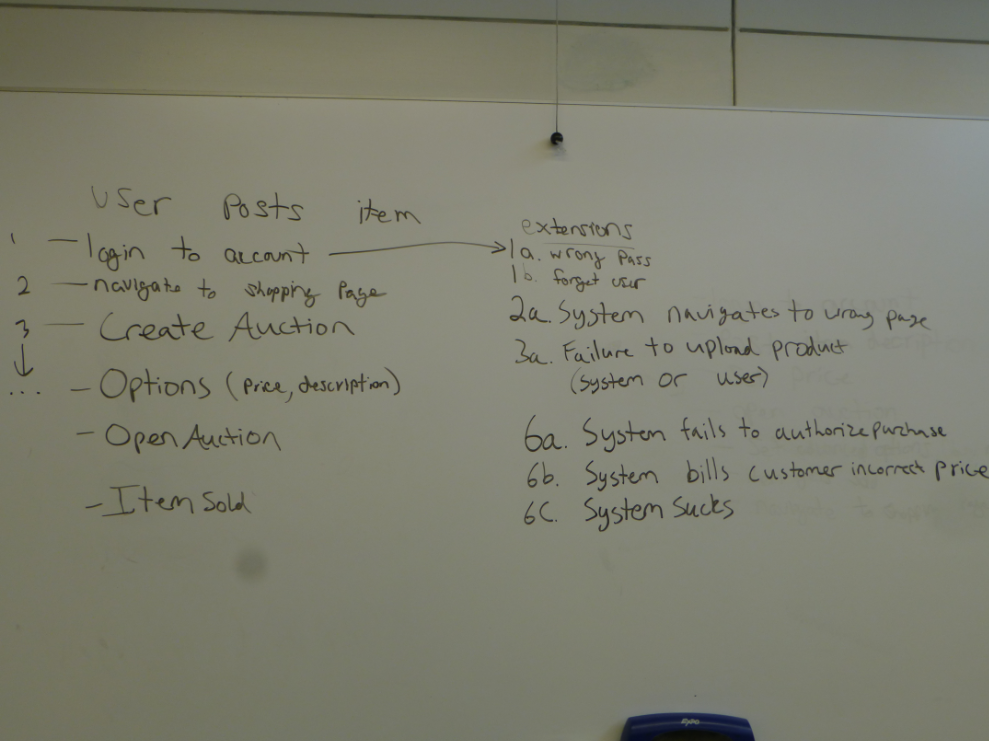 User Posts item
1 — login to account
2 — navigate to shopping Page
3 — Create Auction
... - Options (Price, description)
- Open Auction
- Item Sold
extensions
1a. wrong pass
1b. forget user
2a. System navigates to wrong page
3a. Failure to upload product
(system or user)
6a. System fails to authorize purchase
6b. System bills customer incorrect price
6c. System Sucks
expo